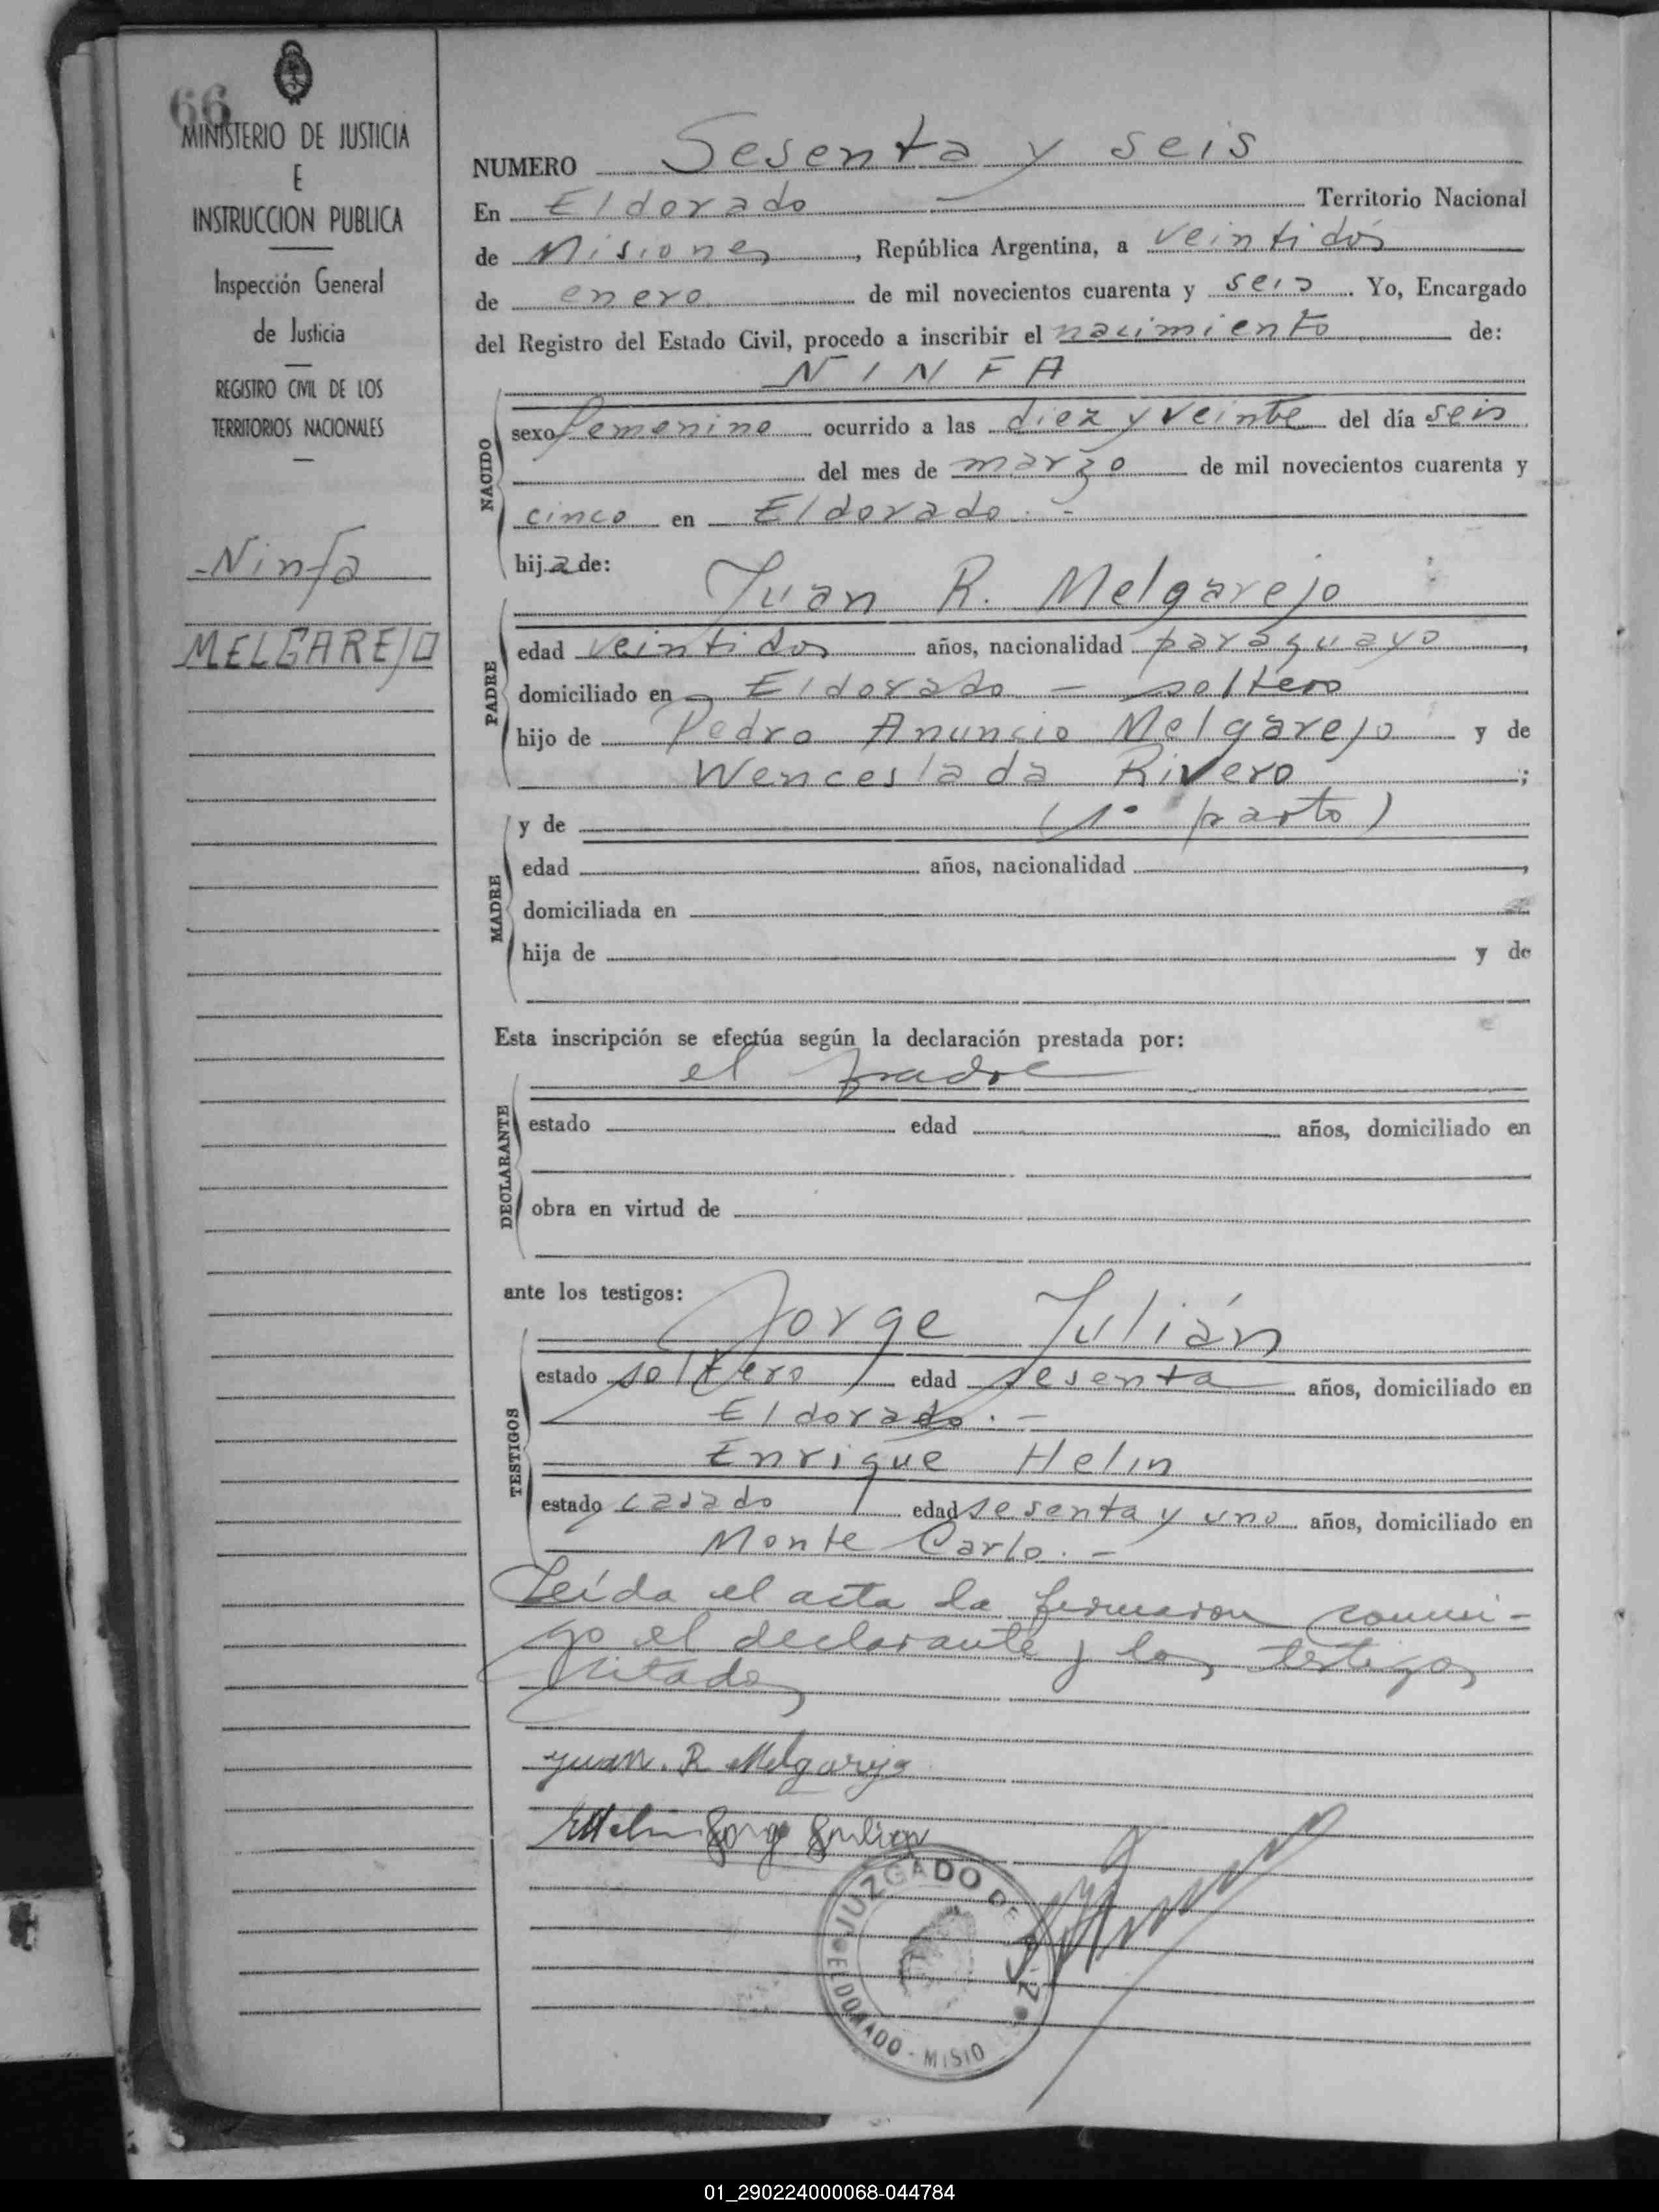 66
MINISTERIO DE JUSTICIA
E
INSTRUCCION PUBLICA
Inspección General
de Justicia
REGISTRO CIVIL DE LOS
TERRITORIOS NACIONALES
Ninfa
MELGAREJO
NUMERO Sesenta y seis
En Eldorado — Territorio Nacional
de Misiones, República Argentina, a veintidós
de enero de mil novecientos cuarenta y seis. Yo, Encargado
del Registro del Estado Civil, procedo a inscribir el nacimiento de:
NINFA
NACIDO
sexo femenino ocurrido a las diez y veinte del día seis
del mes de marzo de mil novecientos cuarenta y
cinco en Eldorado.-
hija de:
Juan R. Melgarejo
PADRE
edad veintidos años, nacionalidad paraguayo,
domiciliado en Eldorado — soltero
hijo de Pedro Anuncio Melgarejo y de
Wenceslada Rivero;
MADRE
y de (1° parto)
edad años, nacionalidad ,
domiciliada en
hija de y de
Esta inscripción se efectúa según la declaración prestada por:
el padre
DECLARANTE
estado edad años, domiciliado en
obra en virtud de
ante los testigos:
Jorge Julián
TESTIGOS
estado soltero edad sesenta años, domiciliado en
Eldorado.-
Enrique Helin
estado casado edad sesenta y uno años, domiciliado en
Monte Carlo.-
Leída el acta la firmaron conmi-
go el declarante y los testigos
citados
Juan. R Melgarejo
EHelin Jorge Julian
JUZGADO DE PAZ
ELDORADO - MISIO
01_290224000068-044784